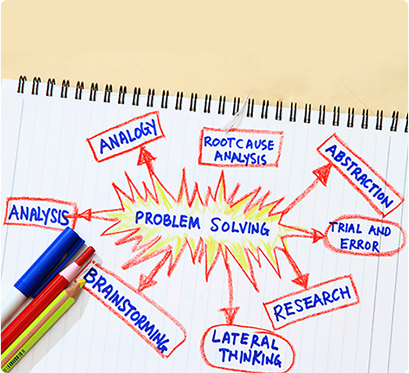 ANALOGY
ROOT CAUSE
ANALYSIS
ABSTRACTION
ANALYSIS
PROBLEM SOLVING
TRIAL AND
ERROR
BRAINSTORMING
RESEARCH
LATERAL
THINKING